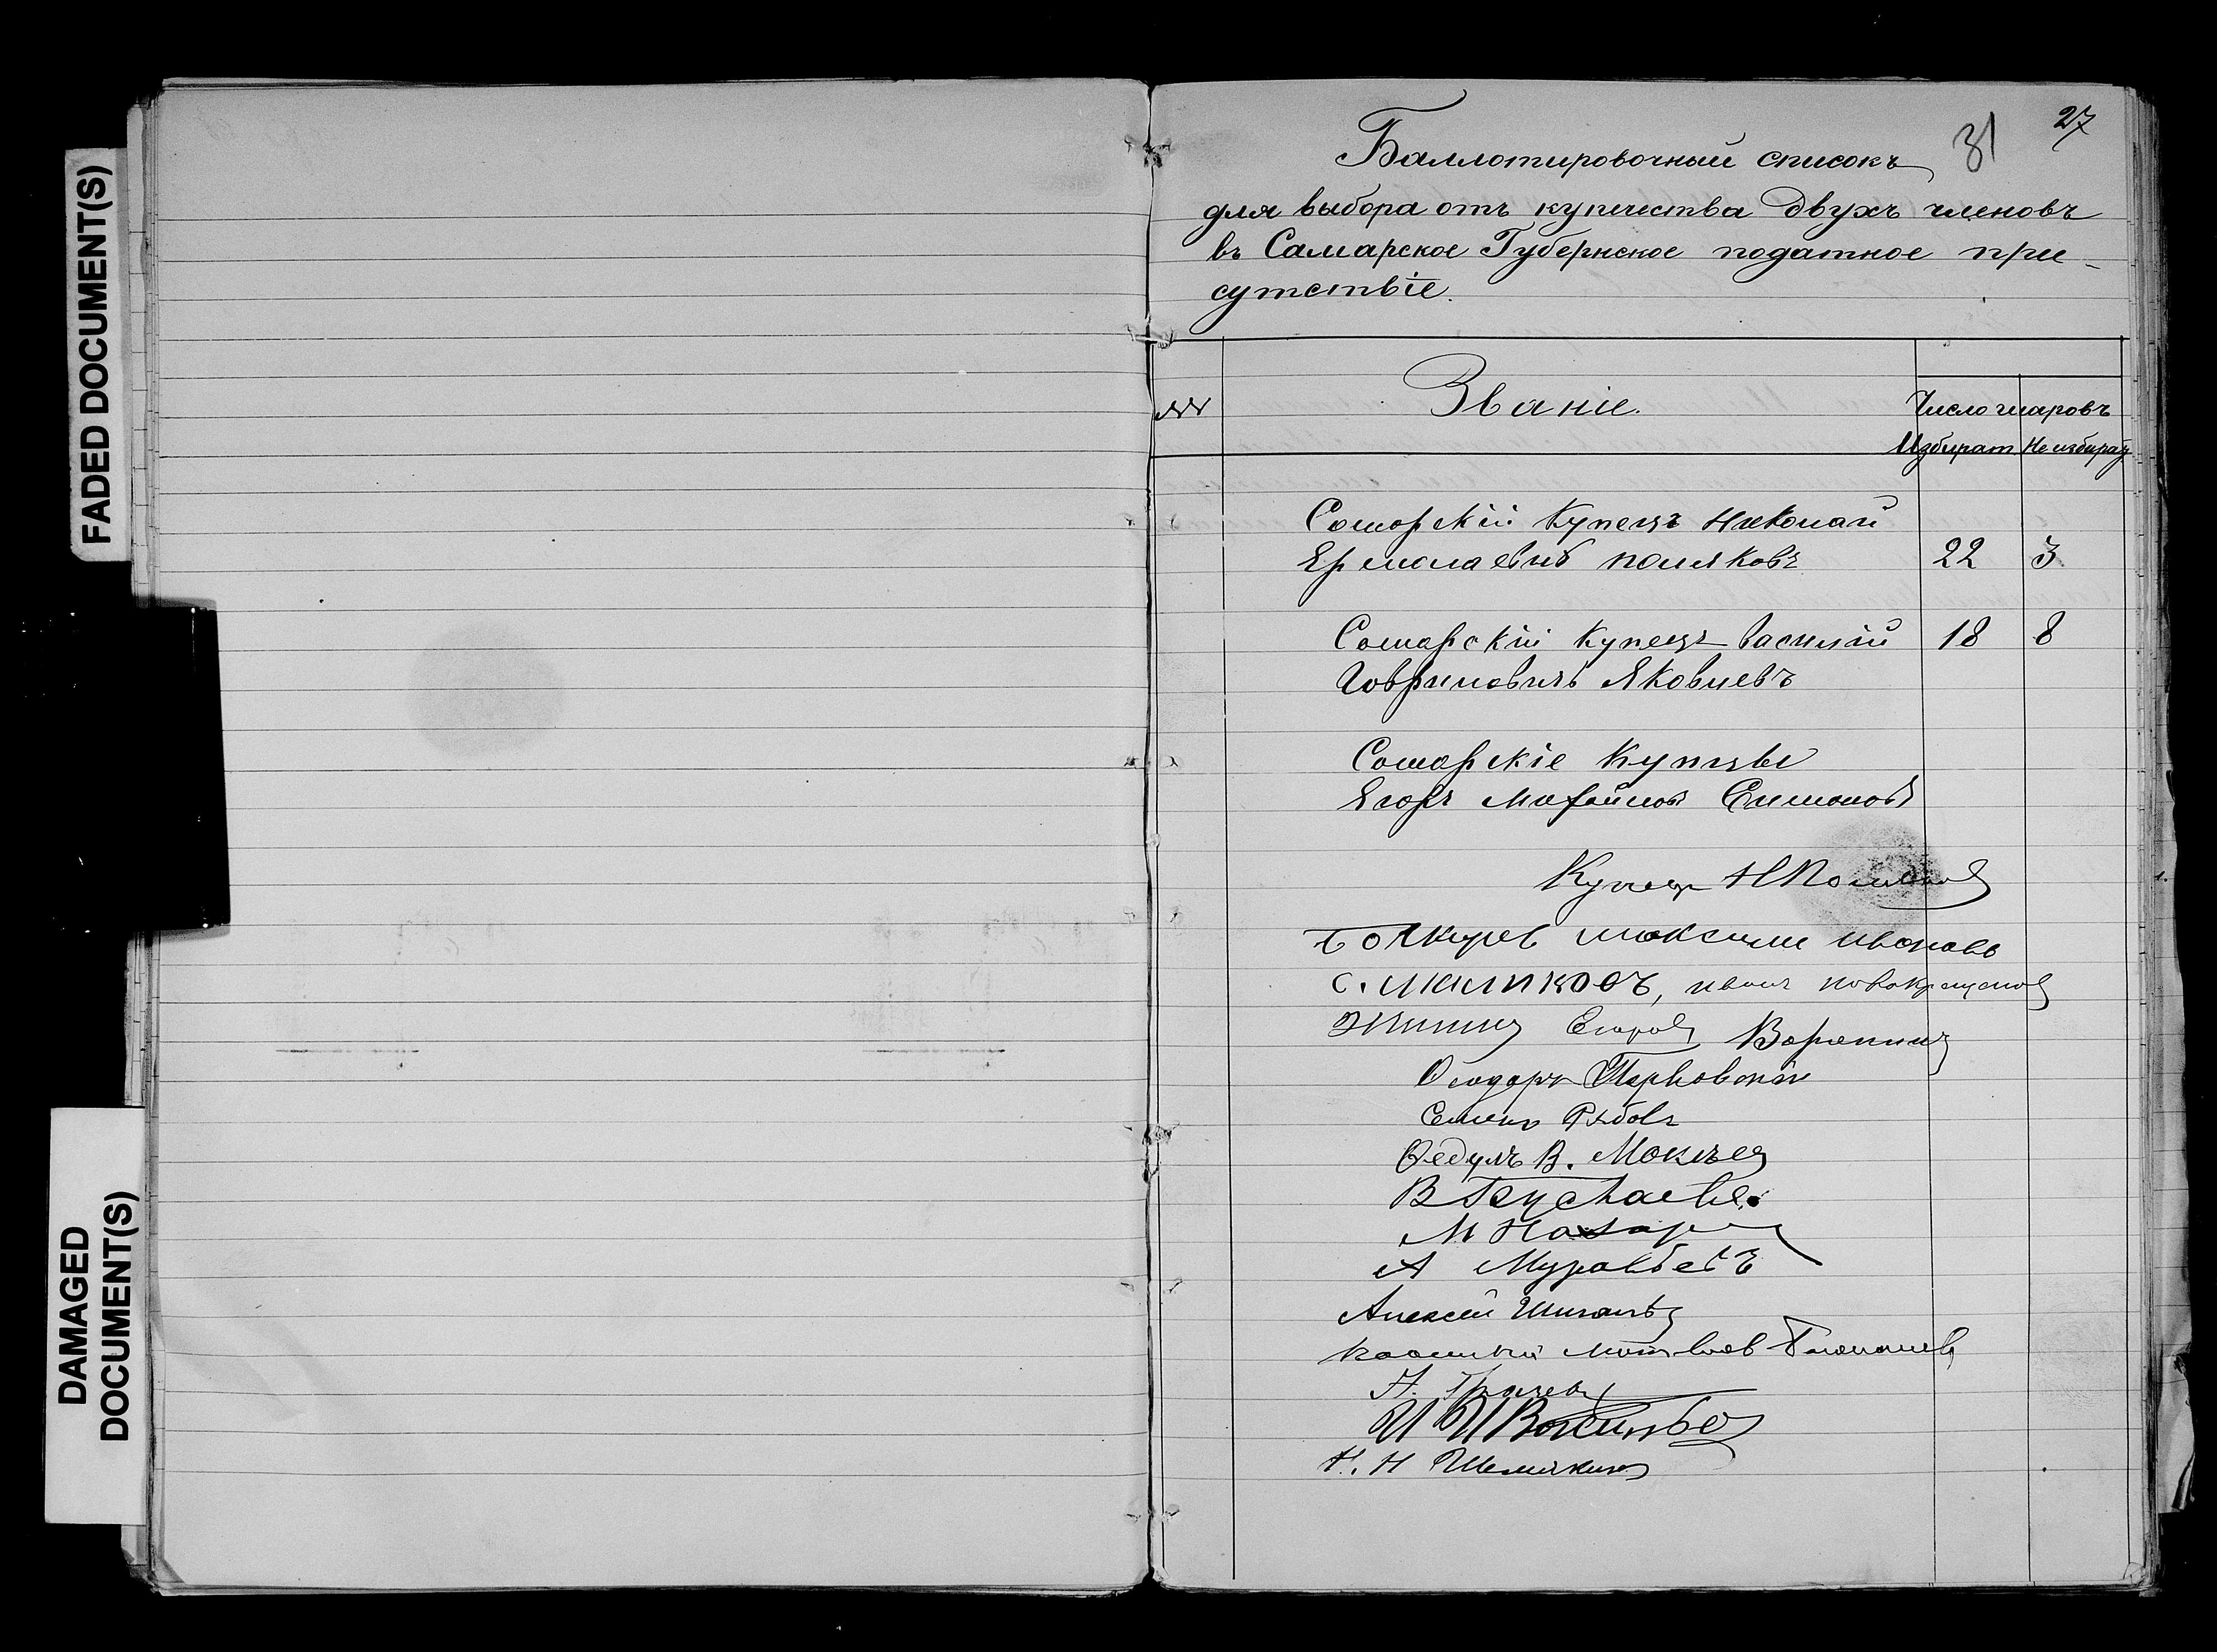 FADED DOCUMENT(S)
DAMAGED
DOCUMENT(S)
27
31
Баллотировочный списокъ
для выбора отъ купечества двухъ членовъ
въ Самарское Губернское податное при-
сутствіе.
№№
Званіе.
Число шаровъ
Избират
Не избират
Самарскій Купецъ Николай
Ермолаевичъ поляковъ
22
3
Самарскій Купецъ василій
18
8
Говриловичъ Яковлевъ
Самарскіе Купцы
Егоръ Михайлов Симоновъ
Купецъ Н Поляковъ
Максим ивоновъ
иванъ новокрещенов
Егоров
Феодоръ
Семенъ Рябовъ
Федулъ В. Мокѣев
М Назар
А Муравьевъ
Алексѣй
Н. Грачевъ
И И Васильев
Н. Н Шемякинъ